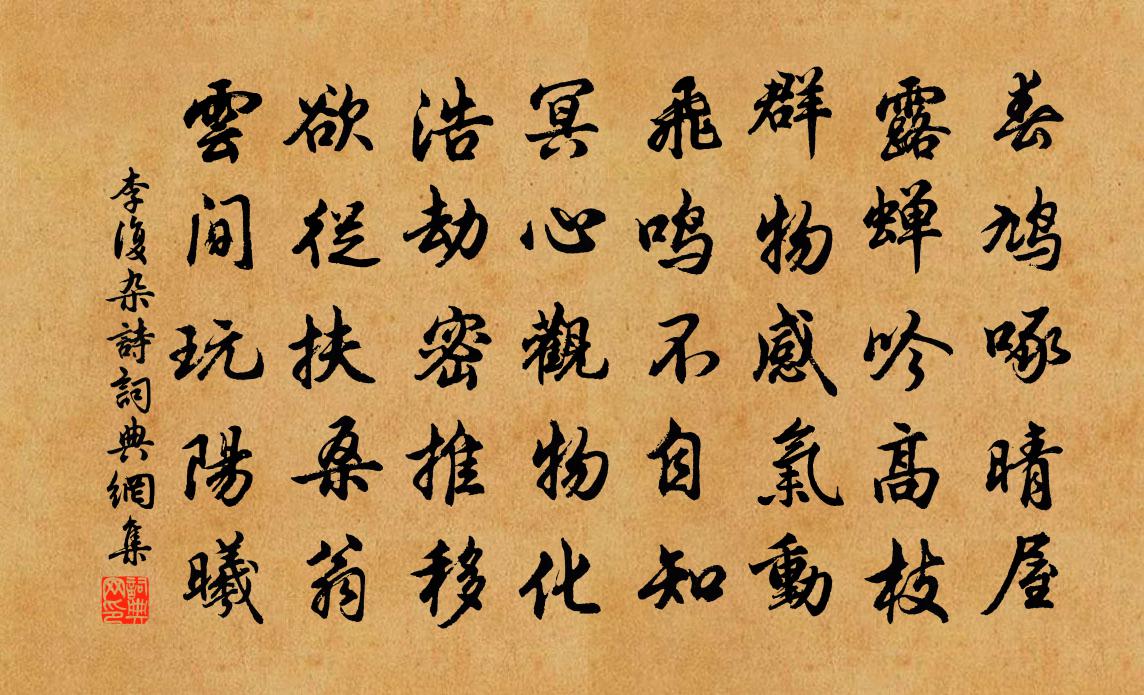 春鳩啄晴屋
露蝉吟高枝
群物感氣動
飛鸣不自知
冥心觀物化
浩劫密推移
欲從扶桑翁
雲间玩陽曦
李復杂詩詞典網集
詞典网印